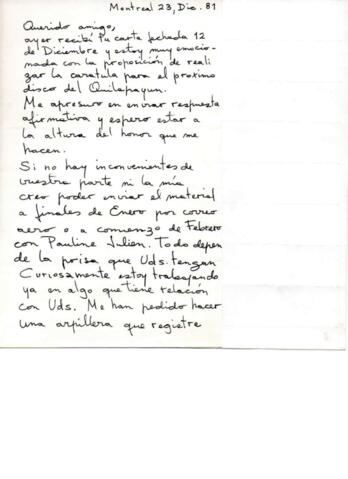 Montreal 23, Dic. 81
Querido amigo,
ayer recibí tu carta fechada 12
de Diciembre y estoy muy emocio-
nada con la proposición de reali
zar la caratula para el proximo
disco del Quilapayun.
Me apresuro en enviar respuesta
afirmativa y espero estar a
la altura del honor que me
hacen.
Si no hay inconvenientes de
vuestra parte ni la mía
creo poder enviar el material
a finales de Enero por correo
aereo o a comienzo de Febrero
con Pauline Julien. Todo depen
de de la prisa que Uds. tengan
Curiosamente estoy trabajando
ya en algo que tiene relación
con Uds. Me han pedido hacer
una arpillera que registre